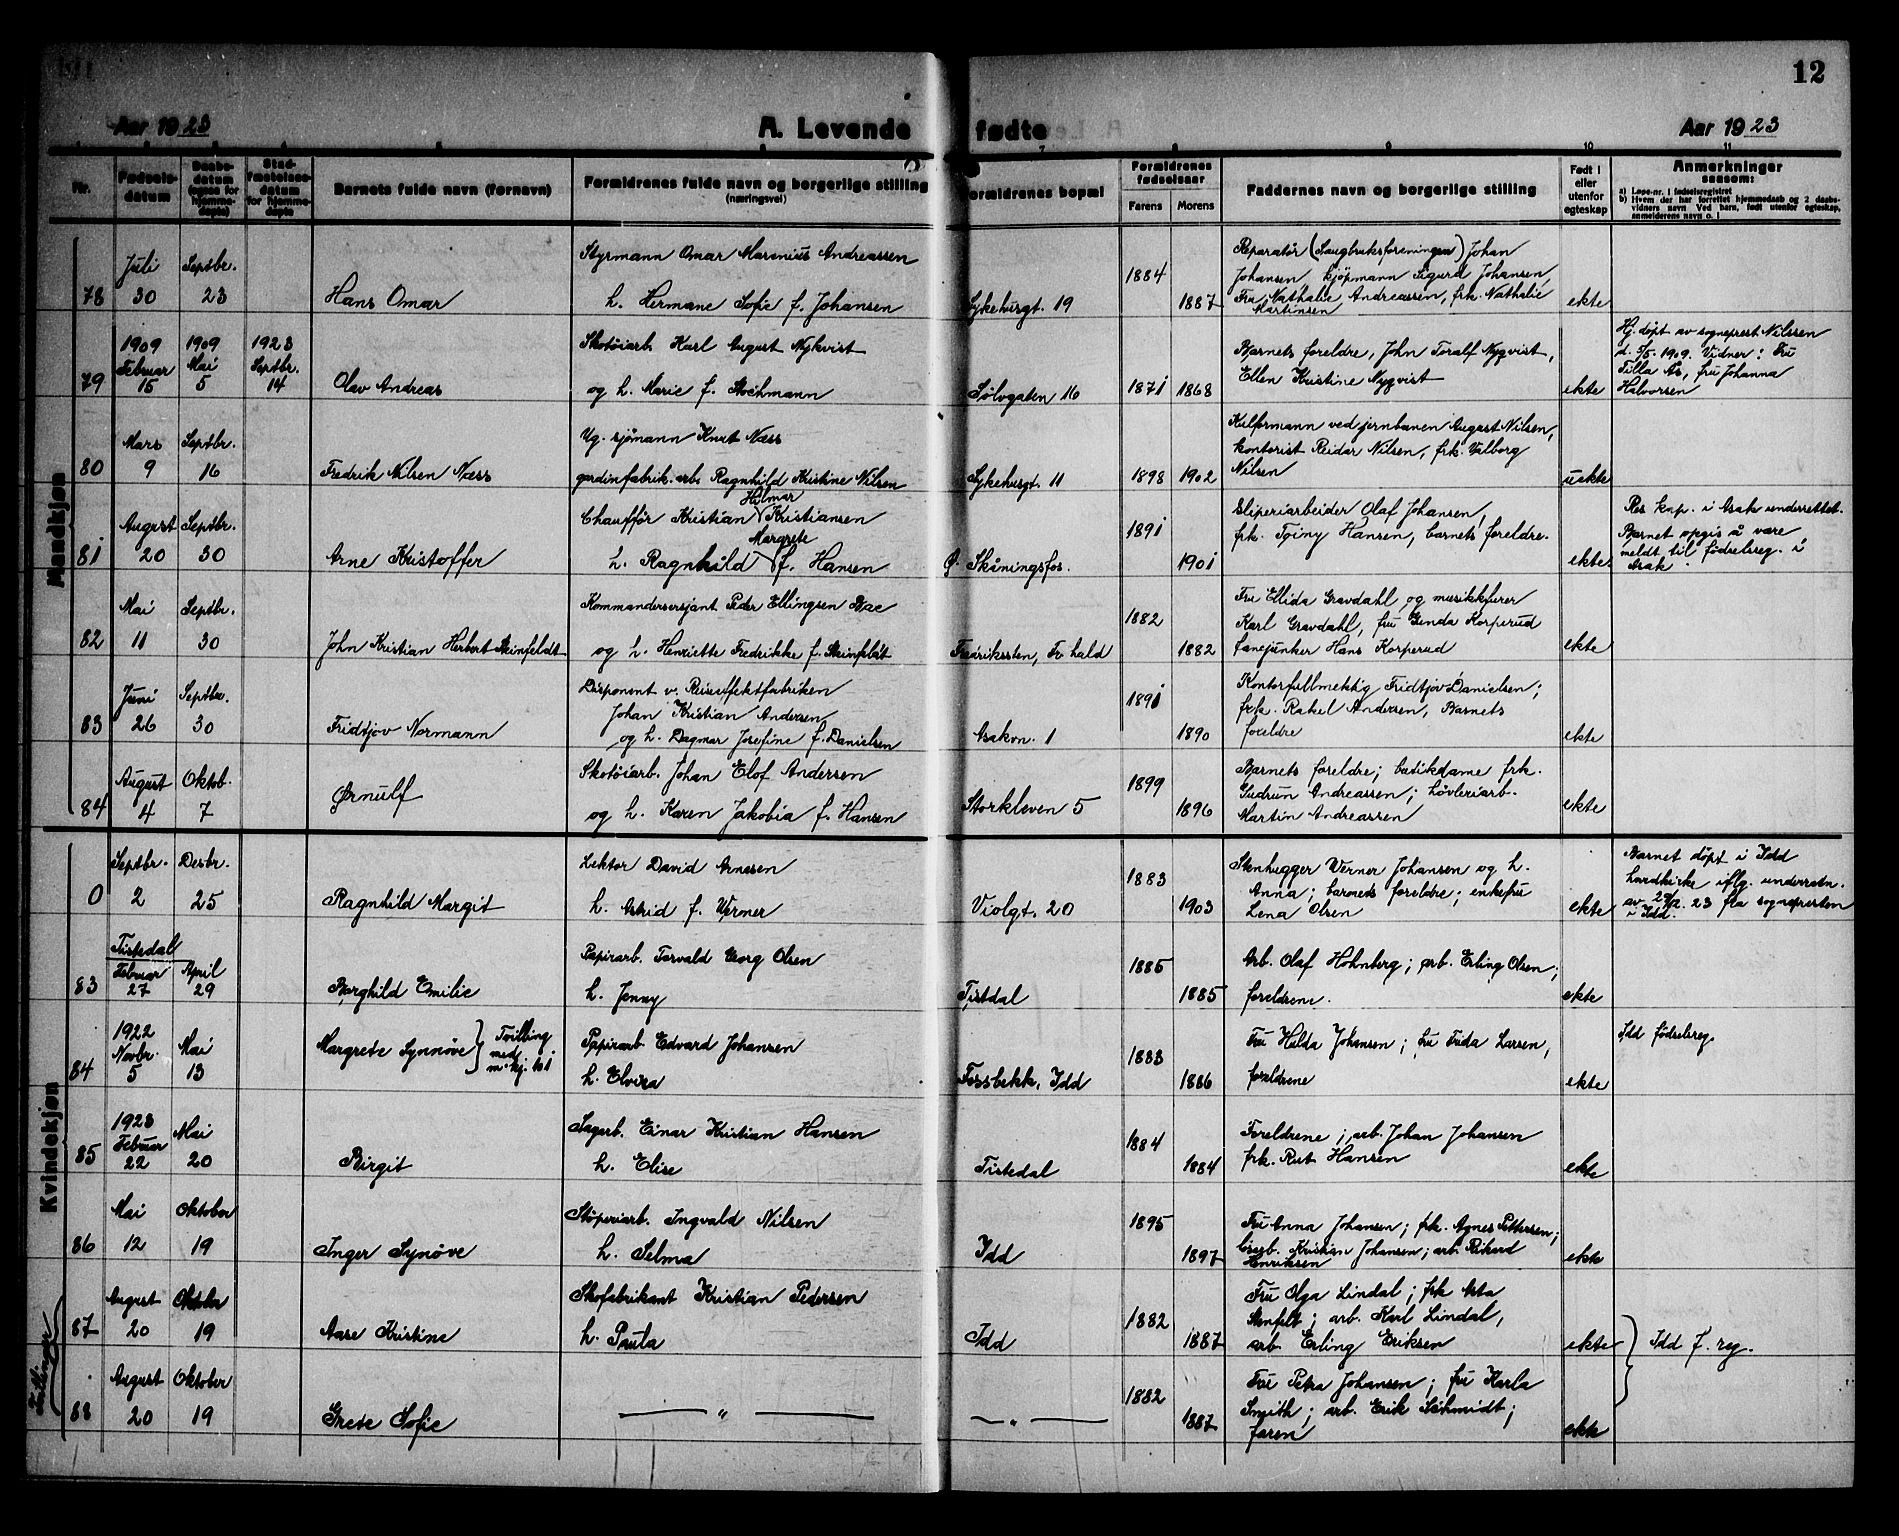 12
Aar 1923
A. Levende fødte
Aar 1923
Nr.
Fødsels-
datum
Daabs-
datum
(ogsaa for
hjemme-
døpte)
Stad-
fæstelses-
datum
for hjemme-
døpte
Barnets fulde navn (fornavn)
Forældrenes fulde navn og borgerlige stilling
(næringsvei)
Forældrenes bopæl
Forældrenes
fødselsaar
Farens Morens
Faddernes navn og borgerlige stilling
Født i
eller
utenfor
egteskap
Anmerkninger
saasom:
a) Løpe-nr. i fødselsregistret
b) Hvem der har forrettet hjemmedaab og 2 daabs-
vidners navn Ved barn, født utenfor egteskap,
anmelderens navn o. l
Mandkjøn
78
Juli
30
Septbr.
23
Hans Omar
Styrmann Omar Marenius Andreassen
h. Hermane Sofie f. Johansen
Sykehusgt. 19
1884
1887
Reparatør (Saugbruksforeningen) Johan
Johansen, kjøpmann Sigurd Johansen,
Fru Nathalie Andreassen, frk. Nathalie
Martinsen
ekte
79
1909
Februar
15
1909
Mai
5
1923
Septbr.
14
Olav Andreas
Skotøiarb. Karl August Nykvist
og h. Marie f. Stochmann
Sølvgaten 16
1871
1868
Barnets foreldre, John Toralf Nyqvist,
Ellen Kristine Nyqvist
ekte
Hj. døpt av sogneprest Nilssen
d. 5/5 1909. Vidner: Fru
Tilla As, fru Johanna
Halvorsen
80
Mars
9
Septbr.
16
Fredrik Nilsen Næss
Ug. sjømann Knut Næss
gardinfabrik.arb. Ragnhild Kristine Nilsen
Sykehusgt. 11
1898
1902
Kulformann ved jernbanen August Nilsen,
kontorist Reidar Nilsen, frk. Valborg
Nilsen
uekte
81
August
20
Septbr.
30
Arne Kristoffer
Hilmar
Chauffør Kristian Kristiansen
Margrete
h. Ragnhild f. Hansen
Ø. Skåningsfos.
1891
1901
Sliperiarbeider Olaf Johansen,
frk. Toiny Hansen, barnets foreldre.
ekte
Res. kap. i Asak underrettet.
Barnet opgis å være
meldt til fødselsreg. i
Asak.
82
Mai
11
Septbr.
30
John Kristian Herbert Steinfeldt
Kommandersersjant Peder Ellingsen Bae
og h. Henriette Fredrikke f. Steinfeldt
Fredriksten, Fr.hald
1882
1882
Fru Ellida Gravdahl og musikkfurer
Karl Gravdahl, fru Gunda Korperud
fanejunker Hans Korperud
ekte
83
Juni
26
Septbr.
30
Fridtjov Normann
Disponent v. Reiseffektfabriken
Johan Kristian Andersen
og h. Dagmar Josefine f. Danielsen
Asakvn. 1
1891
1890
Kontorfullmektig Fridtjov Danielsen;
frk. Rakel Andersen, Barnets
foreldre
ekte
84
August
4
Oktob.
7
Ørnulf
Skotøiarb. Johan Elof Andersen
og h. Karen Jakobia f. Hansen
Storkleven 5
1899
1896
Barnets foreldre; butikdame frk.
Gudrun Andreassen; høvleriarb.
Martin Andreassen
ekte
Kvindekjøn
0
Septbr.
2
Desbr.
25
Ragnhild Margit
Lektor David Arnesen
h. Astrid f. Werner
Violgt. 20
1883
1903
Stenhugger Werner Johansen og h.
Anna; barnets foreldre; enkefru
Lena Olsen
ekte
Barnet døpt i Idd
hovedkirke iflg. underretn.
av 27/12. 23 fra sognepresten
i Idd.
Tistedal
83
Februar
27
April
29
Borghild Emilie
Papirarb. Torvald Georg Olsen
h. Jenny
Tistdal
1885
1885
Arb. Olaf Hohnberg; arb. Erling Olsen;
foreldrene.
ekte
84
1922
Novbr.
5
Mai
13
Margrete Synnøve
Tvilling
med
m.kj. 101
Papirarb. Edvard Johansen
h. Elvira
Fossbekk, Idd
1883
1886
Fru Hilda Johansen; fru Frida Larsen,
foreldrene
ekte
Idd fødselsreg.
85
1923
Februar
22
Mai
20
Birgit
Sagarb. Einar Kristian Hansen
h. Elise
Tistedal
1884
1884
Foreldrene; arb. Johan Johansen
frk. Rut Hansen
ekte
86
Mai
12
Oktober
19
Inger Synøve
Støperiarb. Ingvald Nilsen
h. Selma
Idd
1895
1897
Fru Anna Johansen; frk. Agnes Pettersen;
Kristian Johansen; arb. Rikard
Henriksen
ekte
Tvillinger
87
August
20
Oktober
19
Aase Kristine
Skofabrikant Kristian Pedersen
h. Paula
Idd
1882
1887
Fru Olga Lindal; frk Asta
Stenfelt; arb. Karl Lindal,
arb. Erling Eriksen
ekte
Idd f. reg.
88
August
20
Oktober
19
Grete Sofie
— " —
— " —
1882
1887
Fru Petra Johansen; fru Karla
Smith; arb. Erik Schmidt;
faren
ekte